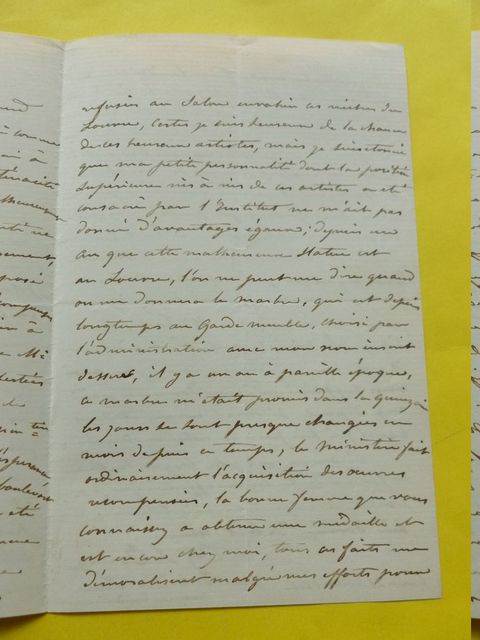 refusées au Salon envahir les niches du
Louvre, certes je suis heureuse de la chance
de ces heureux artistes, mais je suis étonnée
que ma petite personnalité dont la position
supérieure vis à vis de ces artistes a été
consacrée par l'Institut ne m'ait pas
donné d'avantages égaux; depuis un
an que cette malheureuse statue est
au Louvre, l'on ne peut me dire quand
on me donnera le marbre, qui est depuis
longtemps au Garde meuble, choisi par
l'administration avec mon nom inscrit
dessus, il y a un an à pareille époque,
ce marbre m'était promis dans la quinzaine
les jours se sont presque changés en
mois depuis ce temps, le ministère fait
ordinairement l'acquisition des œuvres
récompensées, la bonne femme que vous
connaissez a obtenu une médaille et
est encore chez moi, tous ces faits me
démoralisent malgré mes efforts pour